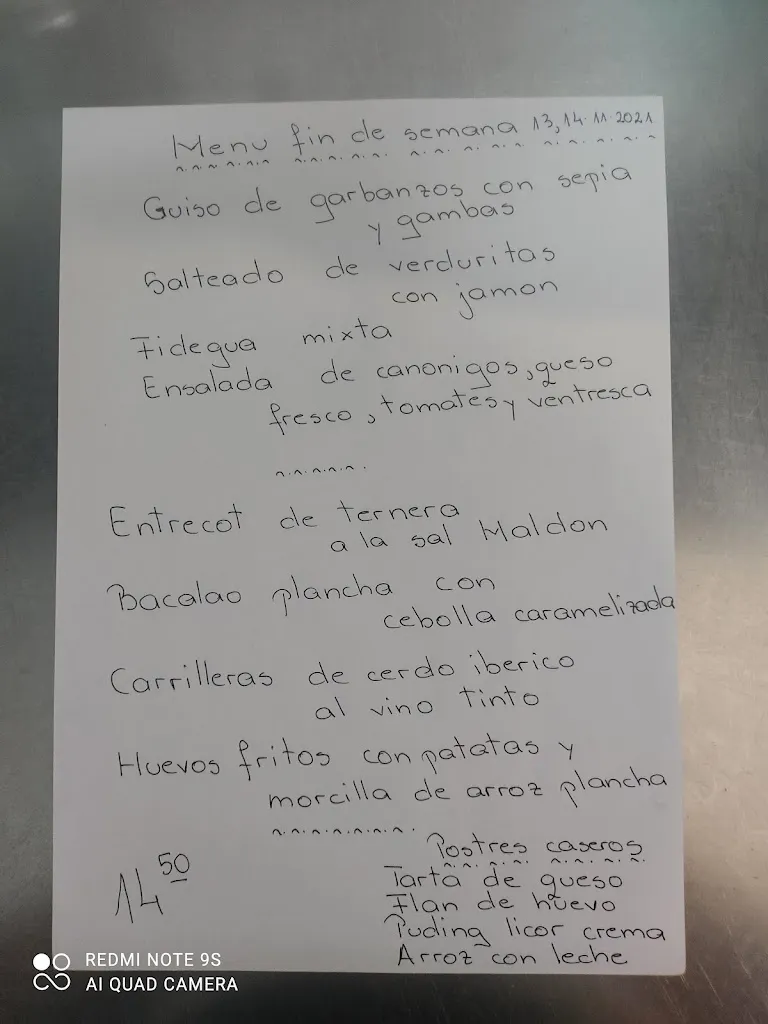 Menu fin de semana 13,14.11.2021
Guiso de garbanzos con sepia
y gambas
Salteado de verduritas
con jamon
Fidegua mixta
Ensalada de canonigos, queso
fresco, tomates y ventresca
Entrecot de ternera
a la sal Maldon
Bacalao plancha con
cebolla caramelizada
Carrilleras de cerdo iberico
al vino tinto
Huevos fritos con patatas y
morcilla de arroz plancha
14 50
Postres caseros
Tarta de queso
Flan de huevo
Puding licor crema
Arroz con leche
REDMI NOTE 9S
AI QUAD CAMERA